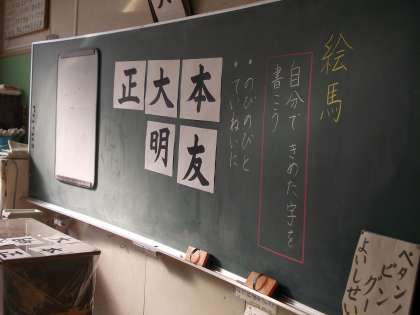 絵馬
自分できめた字を
書こう
・のびのびと
・ていねいに
本
大
正
友
明
ペタン！
ピン
グー
よいしせい